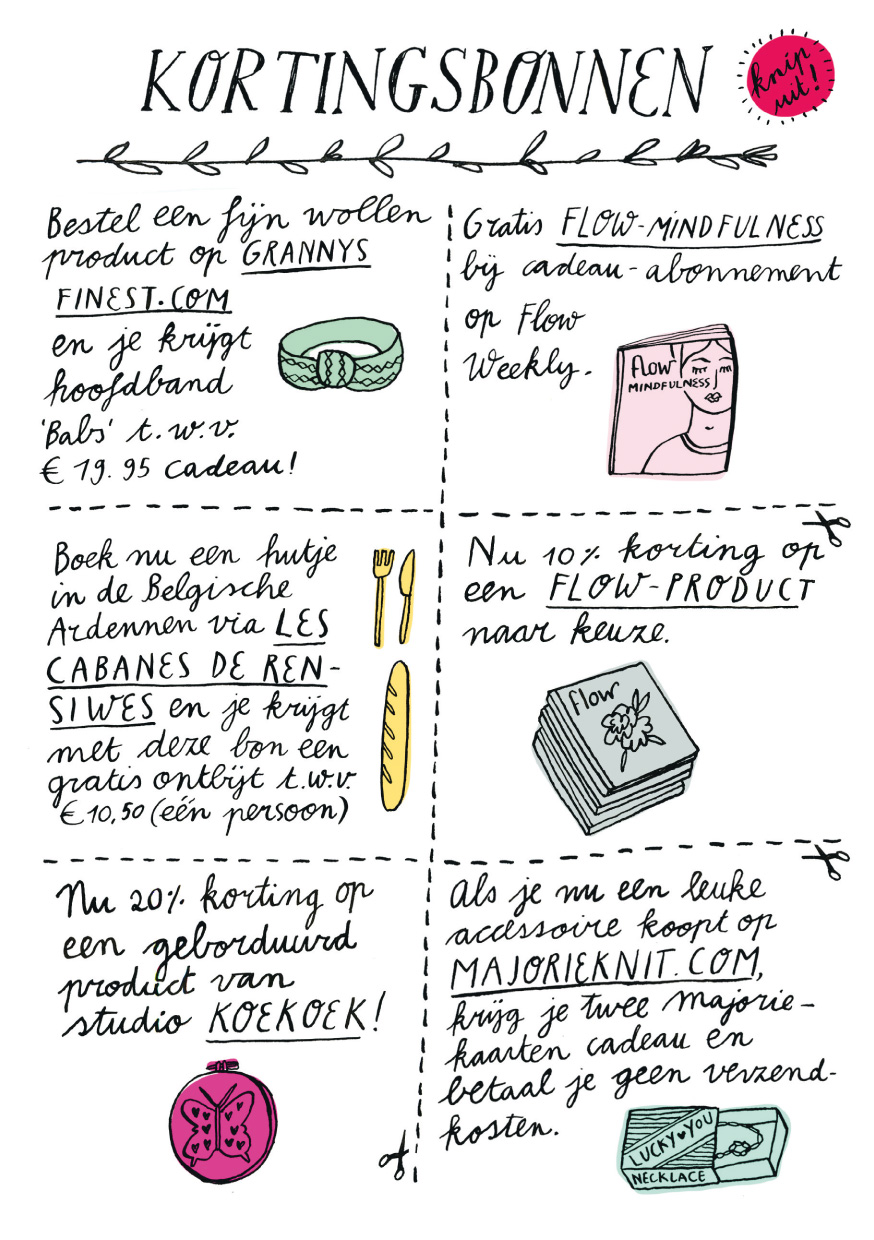 KORTINGSBONNEN
knip
uit!
Bestel een fijn wollen
product op GRANNYS
FINEST.COM
en je krijgt
hoofdband
'Babs' t.w.v.
€ 19.95 cadeau!
Gratis FLOW-MINDFULNESS
bij cadeau-abonnement
op Flow
Weekly.
flow
MINDFULNESS
Boek nu een hutje
in de Belgische
Ardennen via LES
CABANES DE REN-
SIWES en je krijgt
met deze bon een
gratis ontbijt t.w.v.
€10,50 (één persoon)
Nu 10% korting op
een FLOW-PRODUCT
naar keuze.
flow
Nu 20% korting op
een geborduurd
product van
studio KOEKOEK!
Als je nu een leuke
accessoire koopt op
MAJORIEKNIT.COM,
krijg je twee Majorie-
kaarten cadeau en
betaal je geen verzend-
kosten.
LUCKY♥YOU
NECKLACE